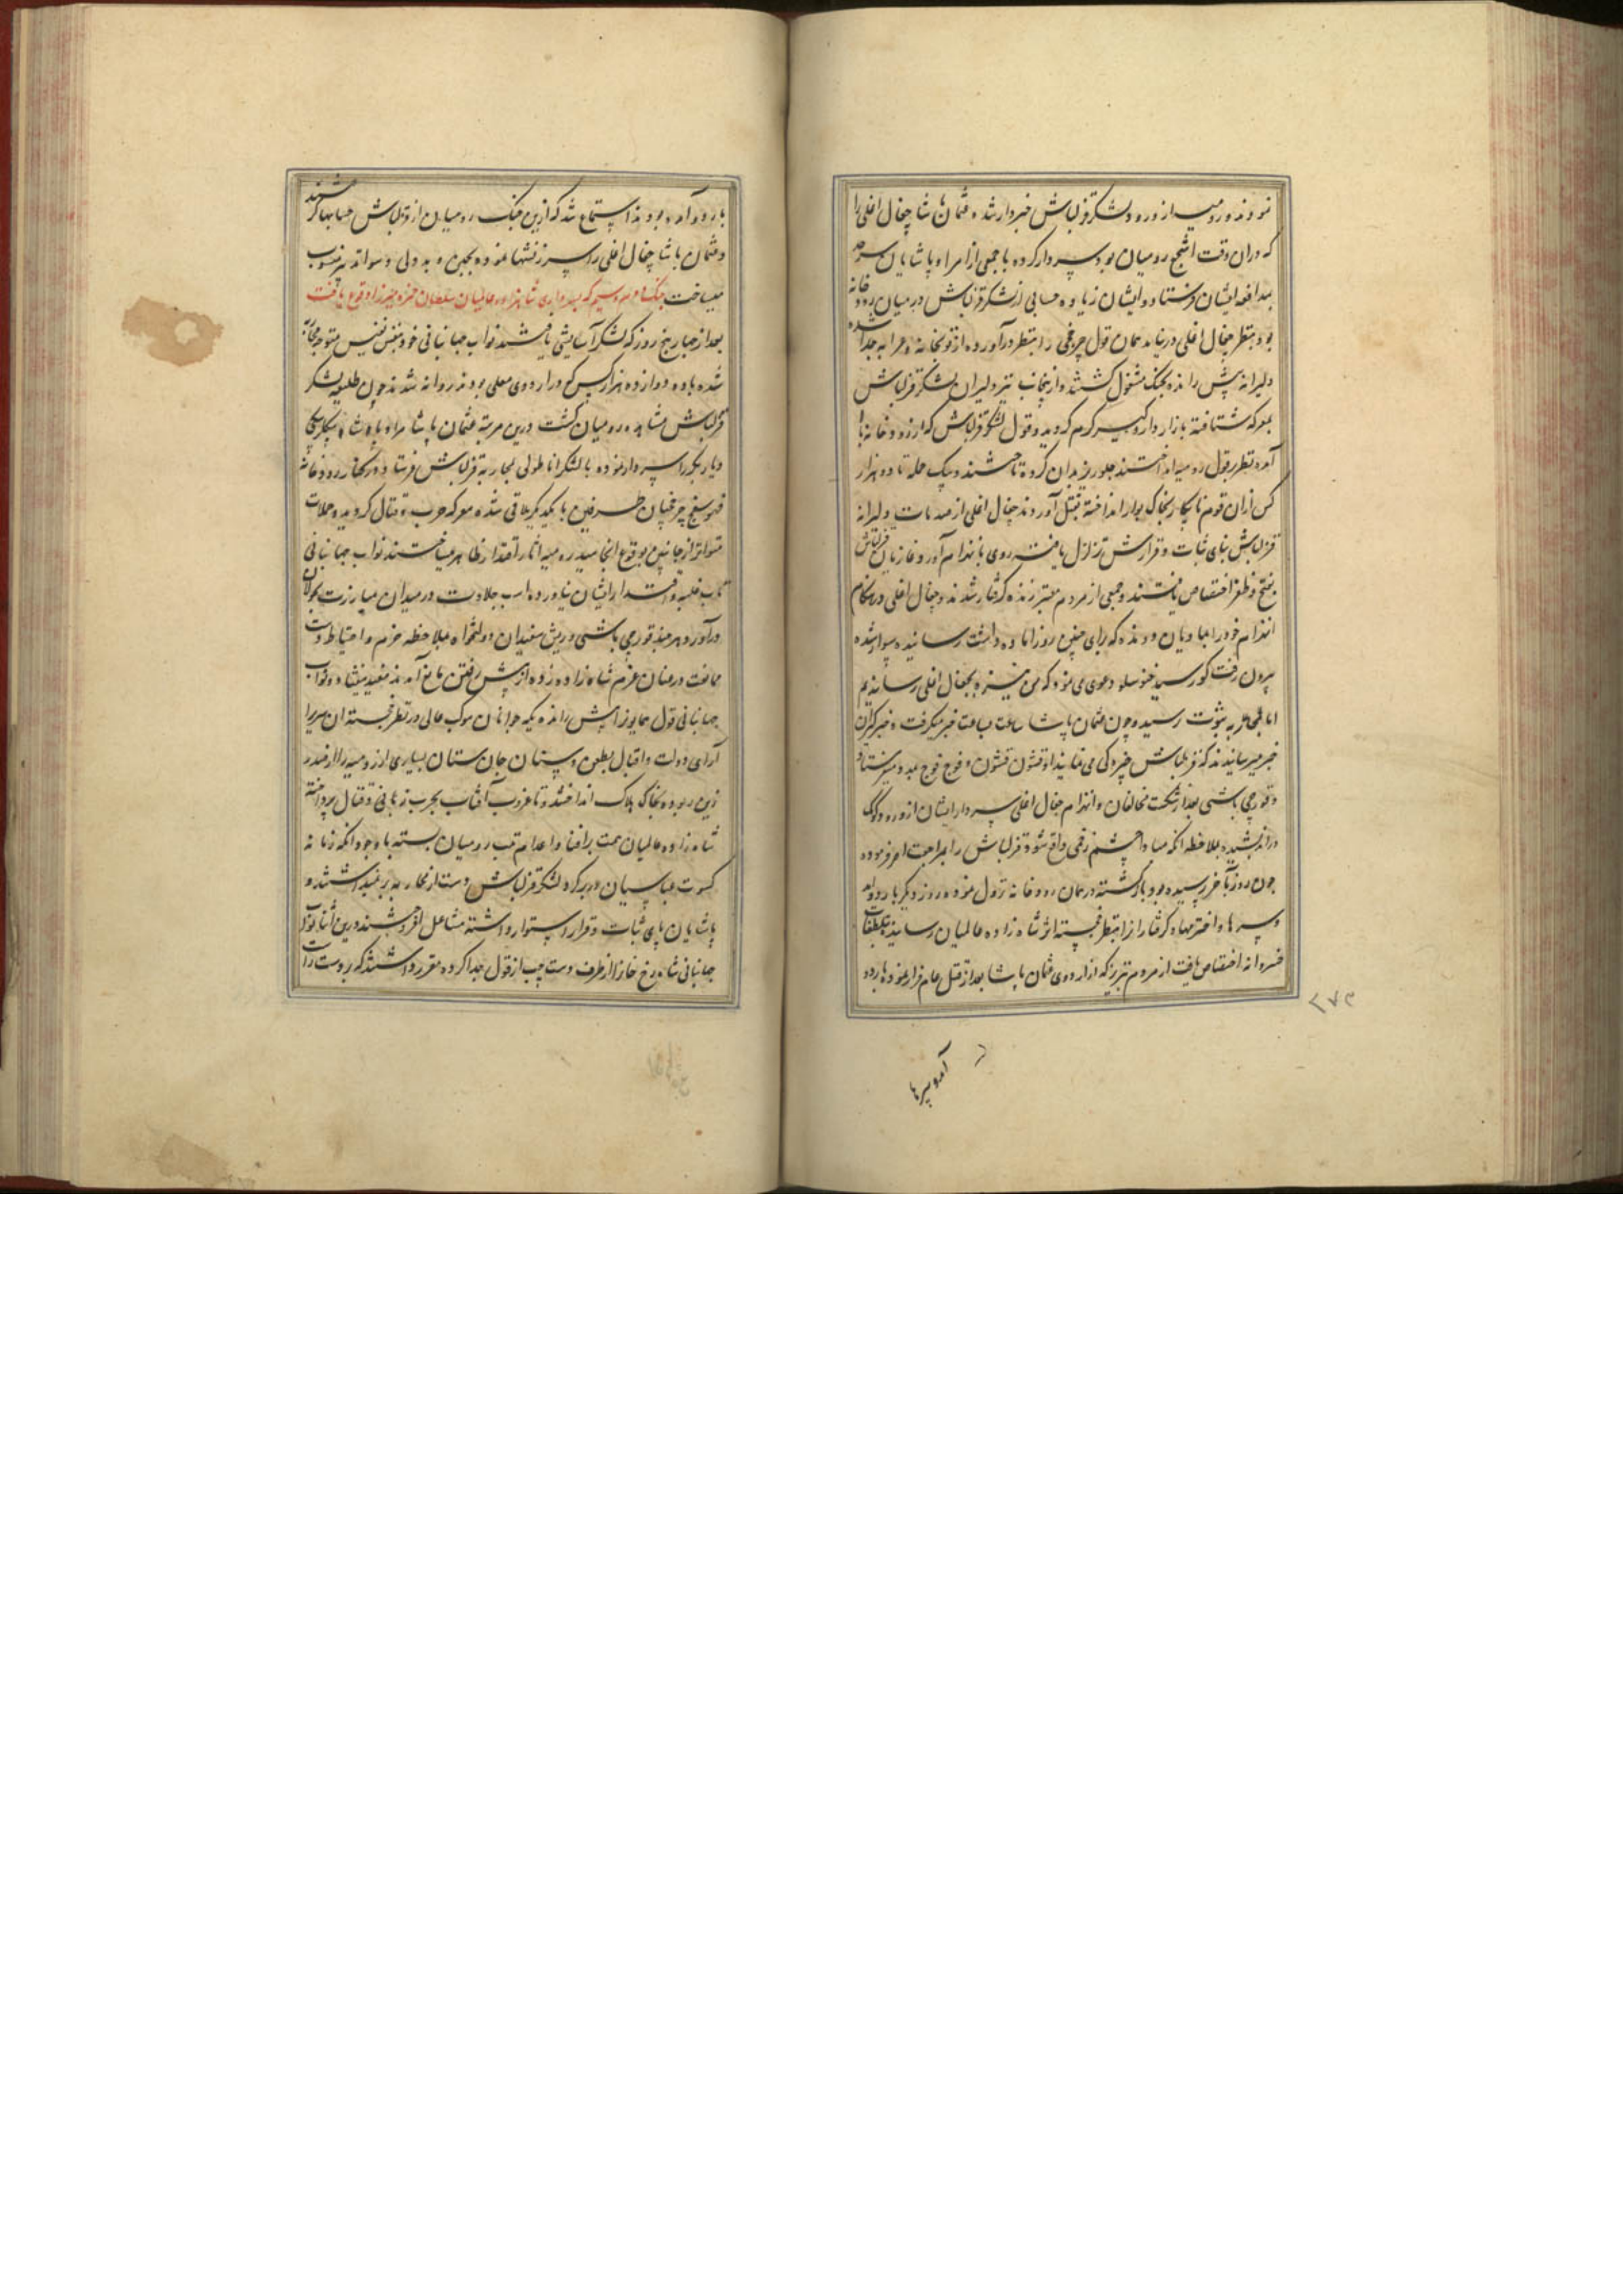 نمودند و رومیه از ورود لشکر قزلباش خبردار شده عثمان پاشا چغال اغلی را
که دران وقت اشجع رومیان بود سردار کرده با جمعی از امراء و پاشایان سرحد
بمدافعه ایشان فرستاد و ایشان زیاده حسابی از لشکر قزلباش در میان رودخانه
بود بنظر چغال اغلی در نیامد همان قول چرخچی را بنظر درآورده از توپخانه و عرابه جدا شده
دلیرانه پیش رانده بجنک مشغول کشتند و از ینجانب نیز دلیران لشکر قزلباش
بمعرکه شتافته بازار دار و کیر کرم کردید و قول لشکر قزلباش که از رودخانه بالا
آمده بنظر قول رومیه انداختند جلوریز بدان کروه تاختند و بیک حمله تا دو هزار
کس ازان قوم نابکار بخاک بوار انداخته بقتل آوردند چغال اغلی از صدمات دلیرانه
قزلباش بنای ثبات و قرارش تزلزل یافته روی بانهزام آورد و غازیان قزلباش
بفتح و ظفر اختصاص یافتند و جمعی از مردم معتبر زنده کرفتار شدند و چغال اغلی در هنکام
انهزام خود را بمادیان دونده که برای چنین روزاماده داشت رسانیده سوار شده
بیرون رفت کور سید خنوسلو دعوی می نمود که من نیزه بچغال اغلی رسانیدم
اما بثبوت رسید و چون عثمان پاشا ساعت بساعت خبر میکرفت و خبرکیران
خبر میرسانیدند که قزلباش خیره کی می نمایند او قشون قشون و فوج فوج بمدد میفرستاد
و قورچی باشی بعد از شکست مخالفان و انهزام چغال اغلی سردار ایشان از ورود کومک
دراندیشیده بملاحظه انکه مبادا چشم زخمی واقع شود قزلباش را بمراجعت امر فرموده
چون روز بآخر رسیده بود باز کشته در همان رودخانه نزول نموده روز دیکر باردو آمد
و سرها و اخترمها و کرفتاران را بنظر خجسته اثر شاه زاده عالمیان رسانیده بتلطفات
خسروانه اختصاص یافت از مردم تبریز که از اردوی عثمان پاشا بعد از قتل عام فرار نموده باردو
آمده سرها
۲۷۳
باردو آمده بودند استماع شد که ازین جنک رومیان از قزلباش حسابها کرفتند
و عثمان پاشا چغال اغلی را سرزنشها نموده بجبن و بددلی و سوء تدبیر منسوب
میساخت جنک سیم که بسرداری شاهزاده عالمیان سلطان حمزه میرزا وقوع یافت
بعد از چهار پنج روز که لشکر آسایشی یافتند نواب جهانبانی خود بنفس نفیس متوجه محاربه
شده با ده دوازده هزار کس که در اردوی معلی بودند روانه شدند چون طلیعه لشکر
قزلباش مشاهده رومیان کشت درین مرتبه عثمان پاشا مراد پاشا بیکلربیکی
دیاربکر را سردار نموده با لشکر اناطولی بمحاربه قزلباش فرستاد و در کنار رودخانه
فهوسفنج چرخچیان طرفین با یکدیکر ملاقی شده معرکه حرب و قتال کردید و حملات
متواتر از جانبین بوقوع انجامید رومیه آثار اقتدار ظاهر میساختند نواب جهانبانی
تاب غلبه و اقتدار ایشان نیاورده اسب جلادت در میدان مبارزت بجولان
درآورد هرچند قورچی باشی و ریش سفیدان دولتخواه بملاحظه حزم و احتیاط دست
ممانعت در عنان عزم شاه زاده زده از پیش رفتن مانع آمدند مفید نیفتاد و نواب
جهانبانی قول همایون را پیش رانده یکه جوانان موکب عالی در نظر خجسته آن سریر
آرای دولت و اقبال بطعن و سنان جان ستان بسیاری از رومیه را از صدر
زین ربوده بخاک هلاک انداختند و تا غروب آفتاب بحرب زبانی و قتال پرداخته
شاه زاده عالمیان همت بر افنا و اعدام رومیان بسته با وجود آنکه زمانه
کسوت عباسیان در بر کرد لشکر قزلباش دست از محاربه بر نمیداشتند و
پاشایان پای ثبات و قرار استوار داشته مشاعل افروختند درین اثنا نواب
جهانبانی شاهرخ خان را از طرف دست چپ از قول جدا کرده مقرر داشتند که بر دست راست